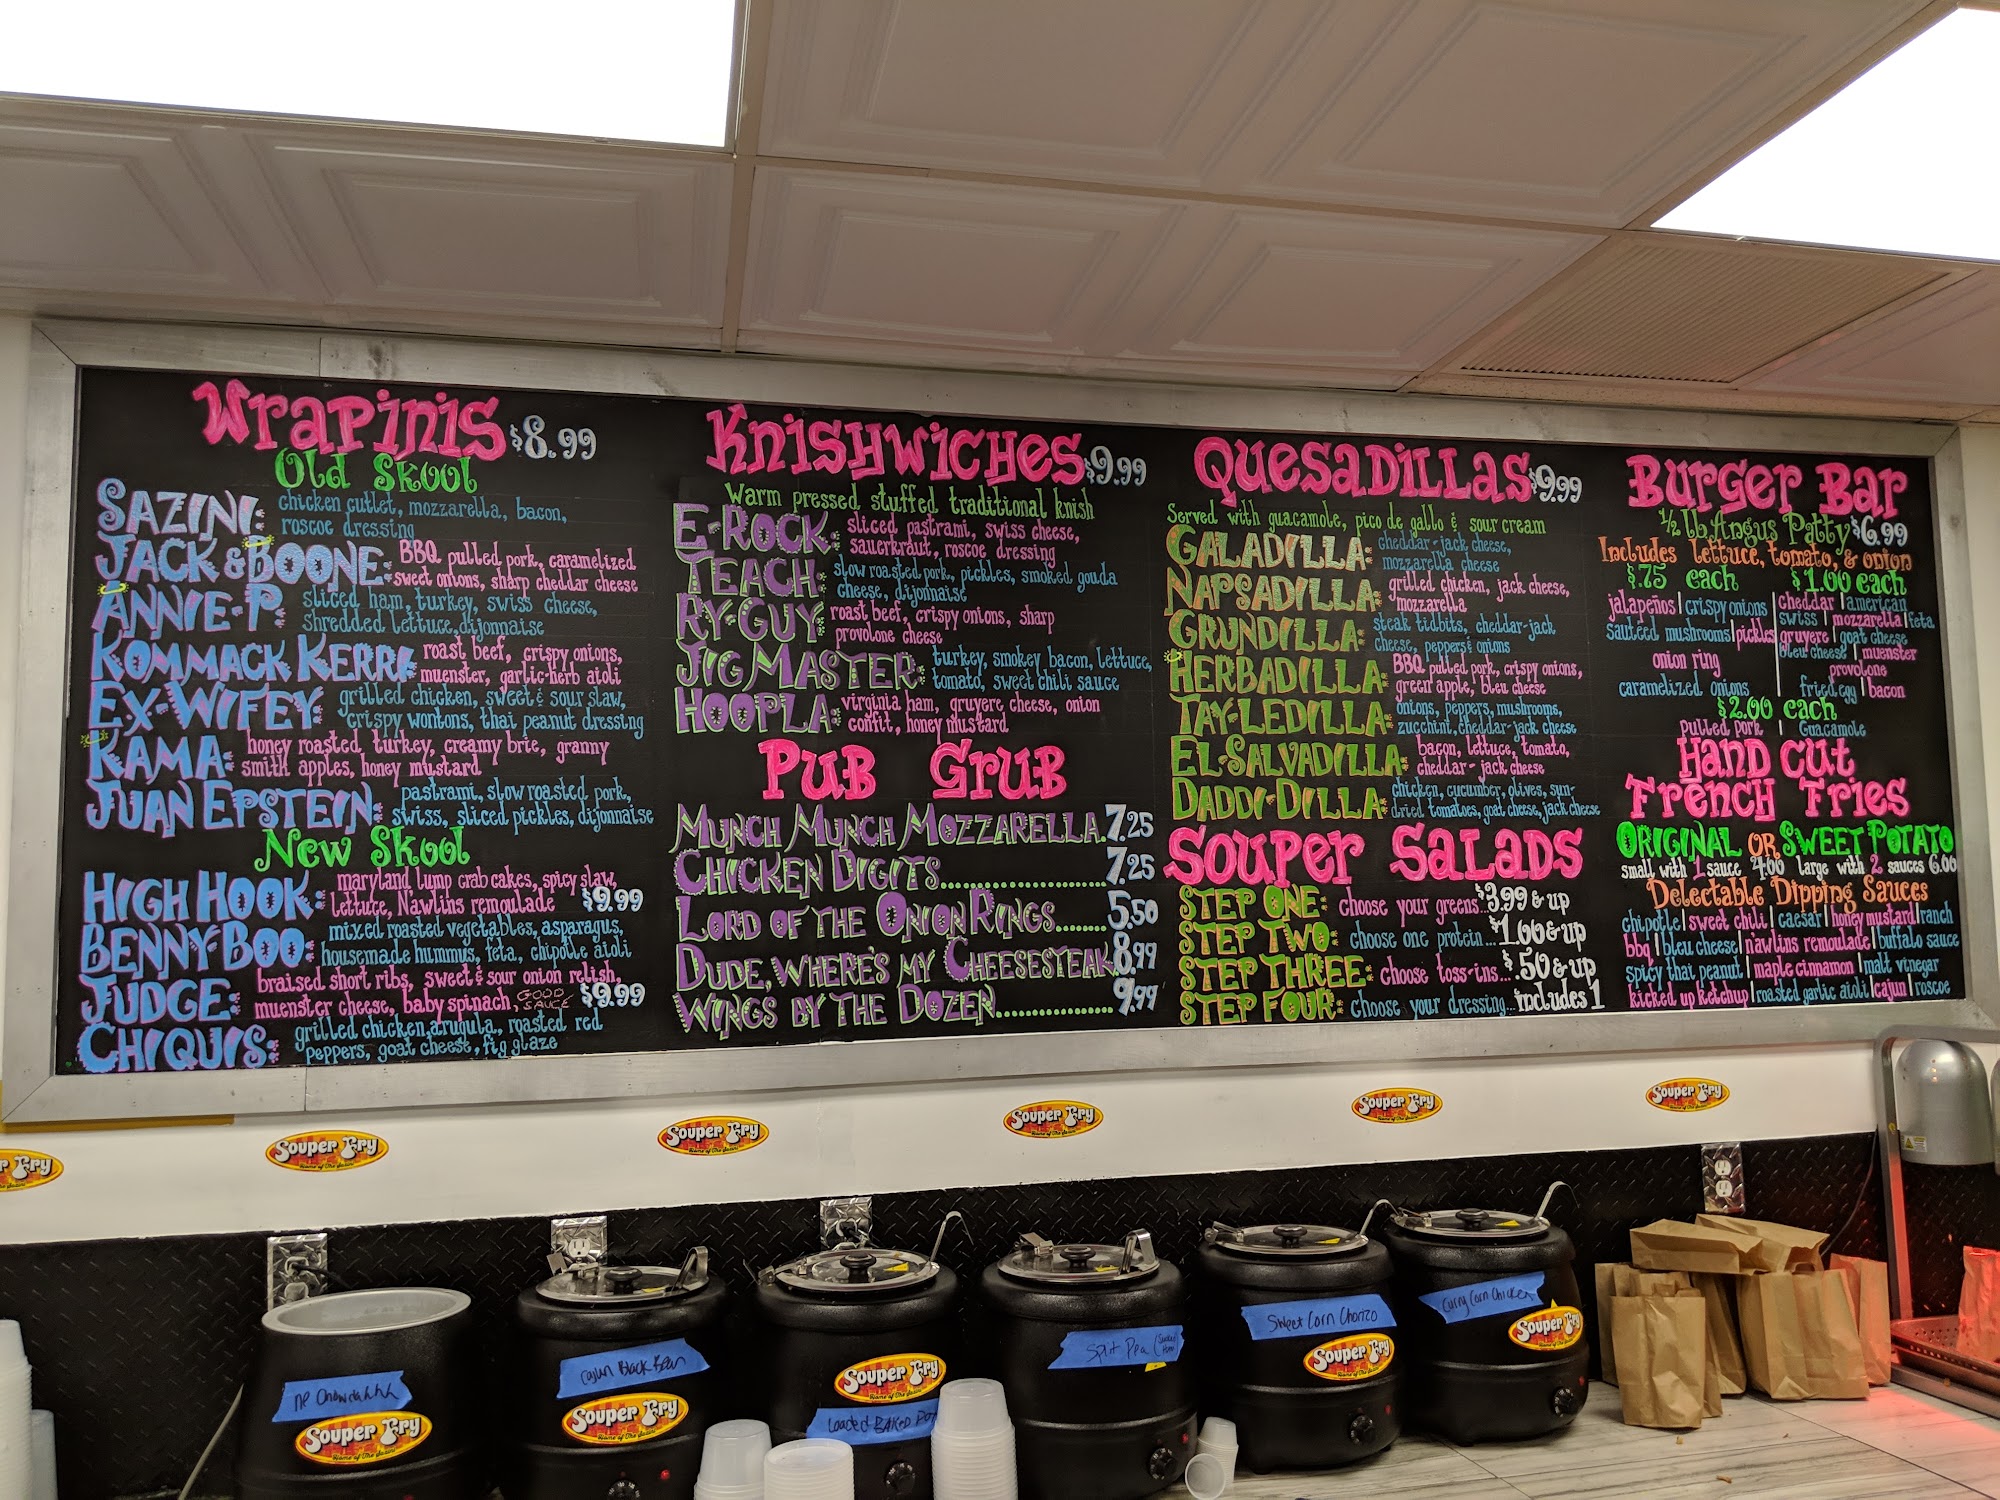 Wrapinis $8.99
Old Skool
Sazini: chicken cutlet, mozzarella, bacon,
roscoe dressing
Jack & Boone: BBQ pulled pork, caramelized
sweet onions, sharp cheddar cheese
Annie-P: sliced ham, turkey, swiss cheese,
shredded lettuce, dijonnaise
Kommack Kerri: roast beef, crispy onions,
muenster, garlic-herb aioli
Ex-Wifey: grilled chicken, sweet & sour slaw,
crispy wontons, thai peanut dressing
Kama: honey roasted turkey, creamy brie, granny
smith apples, honey mustard
Juan Epstein: pastrami, slow roasted pork,
swiss, sliced pickles, dijonnaise
New Skool
High Hook: maryland lump crab cakes, spicy slaw,
lettuce, Nawlins remoulade $9.99
Benny-Boo: mixed roasted vegetables, asparagus,
housemade hummus, feta, chipotle aioli
Judge: braised short ribs, sweet & sour onion relish,
muenster cheese, baby spinach, GOOD SAUCE $9.99
Chiquis: grilled chicken, arugula, roasted red
peppers, goat cheese, fig glaze
Knishwiches $9.99
Warm pressed stuffed traditional knish
E-Rock: sliced pastrami, swiss cheese,
sauerkraut, roscoe dressing
Teach: slow roasted pork, pickles, smoked gouda
cheese, dijonnaise
Ry-Guy: roast beef, crispy onions, sharp
provolone cheese
Jig Master: turkey, smokey bacon, lettuce,
tomato, sweet chili sauce
Hoopla: virginia ham, gruyere cheese, onion
confit, honey mustard
Pub Grub
Munch Munch Mozzarella. 7.25
Chicken Digits.................... 7.25
Lord of the Onion Rings....... 5.50
Dude, Where's My Cheesesteak 8.99
Wings by the Dozen.............. 9.99
Quesadillas $9.99
Served with guacamole, pico de gallo & sour cream
Galadilla: cheddar-jack cheese,
mozzarella cheese
Napsadilla: grilled chicken, jack cheese,
mozzarella
Grundilla: steak tidbits, cheddar-jack
cheese, peppers & onions
Herbadilla: BBQ pulled pork, crispy onions,
green apple, bleu cheese
Tay-Ledilla: onions, peppers, mushrooms,
zucchini, cheddar-jack cheese
El-Salvadilla: bacon, lettuce, tomato,
cheddar-jack cheese
Daddi-Dilla: chicken, cucumber, olives, sun-
dried tomatoes, goat cheese, jack cheese
Souper Salads
Step One: choose your greens... $3.99 & up
Step Two: choose one protein... $1.00 & up
Step Three: choose toss-ins... $.50 & up
Step Four: choose your dressing... includes 1
Burger Bar
1/2 lb Angus Patty $6.99
Includes lettuce, tomato, & onion
$.75 each $1.00 each
jalapeños | crispy onions | cheddar | american
sautéed mushrooms | pickles | swiss | mozzarella | feta
gruyere | goat cheese
onion ring bleu cheese | muenster
provolone
caramelized onions fried egg | bacon
$2.00 each
pulled pork | Guacamole
Hand Cut
French Fries
Original or Sweet Potato
small with 1 sauce 4.00 large with 2 sauces 6.00
Delectable Dipping Sauces
chipotle | sweet chili | caesar | honey mustard | ranch
bbq | bleu cheese | nawlins remoulade | buffalo sauce
spicy thai peanut | maple cinnamon | malt vinegar
kicked up ketchup | roasted garlic aioli | cajun | roscoe
Souper Fry
Souper Fry
Souper Fry
Souper Fry
Souper Fry
Fry
NE Chowdahhh
Souper Fry
Cajun Black Bean
Souper Fry
Souper Fry
Loaded Baked
Split Pea
Sweet Corn Chorizo
Souper Fry
Curry Corn Chicken
Souper Fry